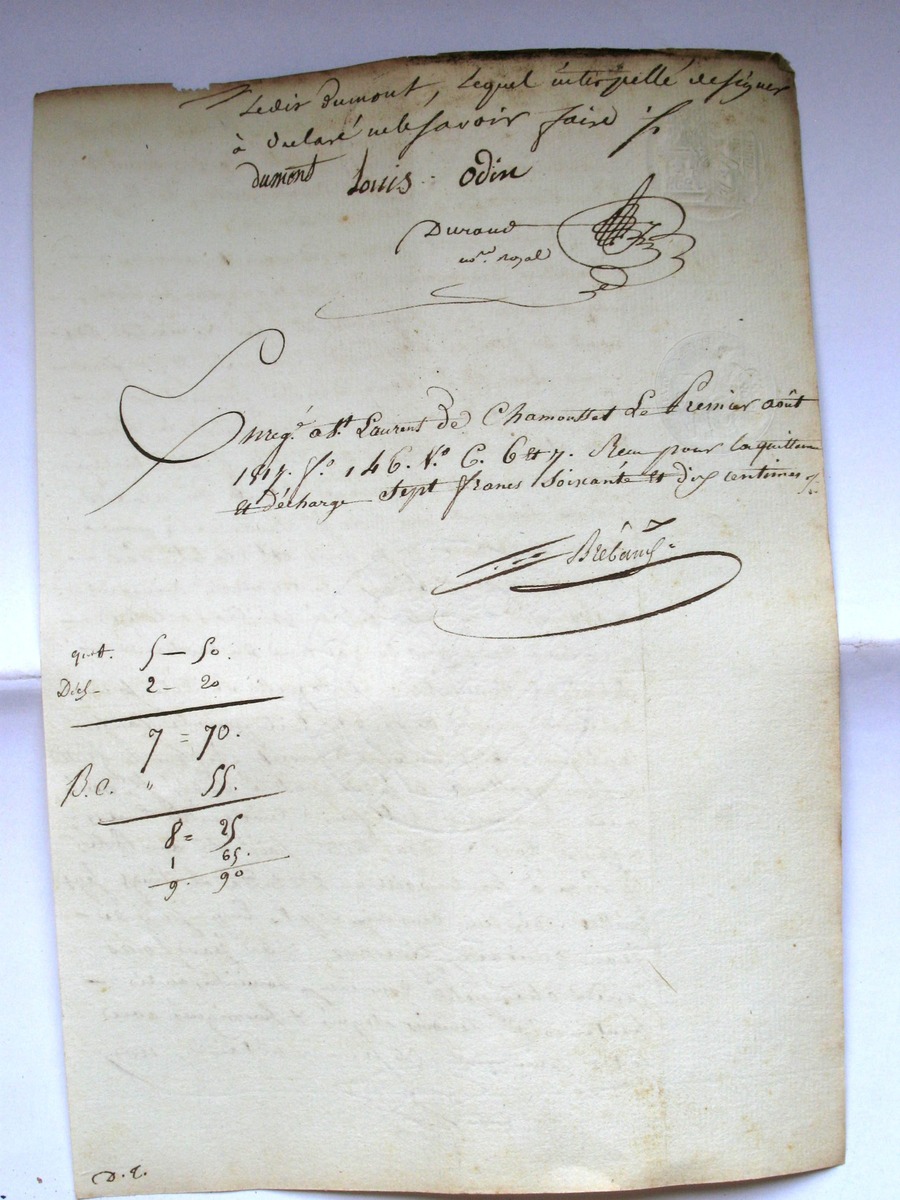 Ledit dumont, Lequel interpellé de signer
à declaré ne le savoir faire
dumont Louis Odin
Durand
no.re royal
Enreg.é a S.t Laurent de Chamousset Le Premier août
1817. f.o 146. V.o C. 6 et 7. Recu pour la quittance
et décharge Sept francs Soixante et dix centimes
quit. 5 — 50.
Déch— 2 — 20
7 = 70.
B.C. " 55.
8 = 25
1 65.
9. 90